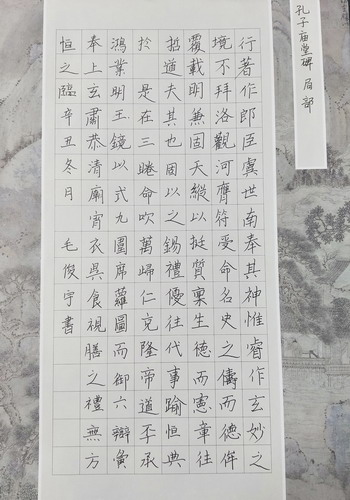 孔子庙堂碑 局部
行著作郎臣虞世南奉其神惟睿作玄妙之
境不拜洛觀河膺符受命名史之儔而德侔
覆載明兼固天縱以挺質稟生德而憲章往
哲道夫其也固以之錫禮優往代事踰恒典
於是在三睠命吹萬歸仁克隆帝道丕承
鴻業明王鏡以式九圍席蘿圖而御六辯寅
奉上玄肅恭清廟宵衣昃食視膳之禮無方
恒之臨辛丑冬月 毛俊宇書